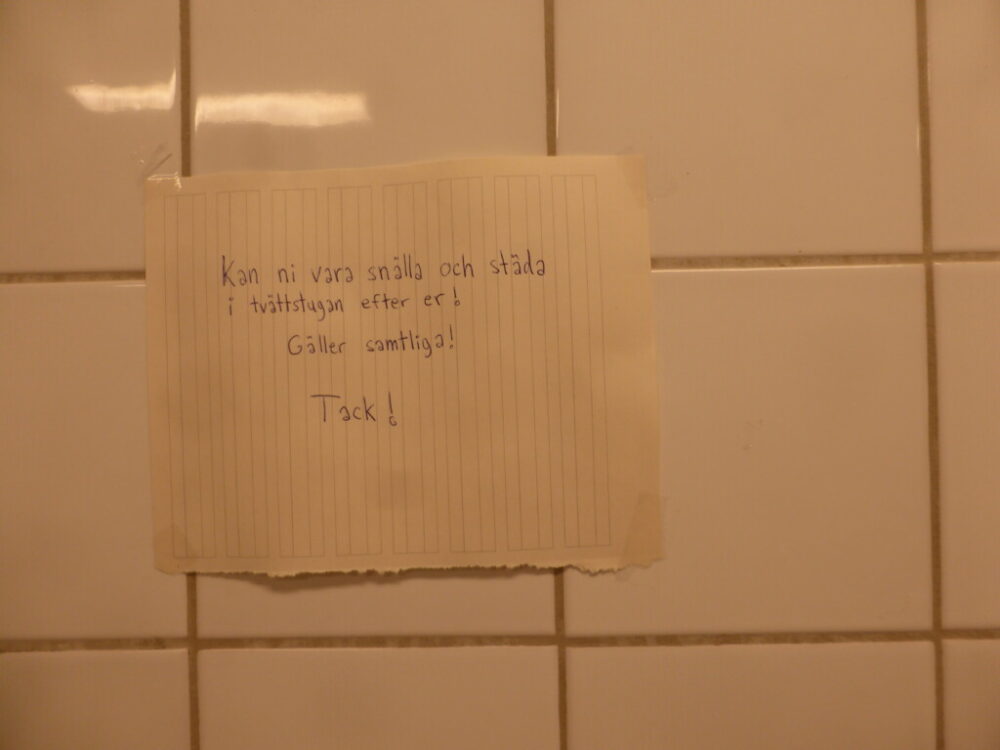 Kan ni vara snälla och städa
i tvättstugan efter er!
Gäller samtliga!
Tack!